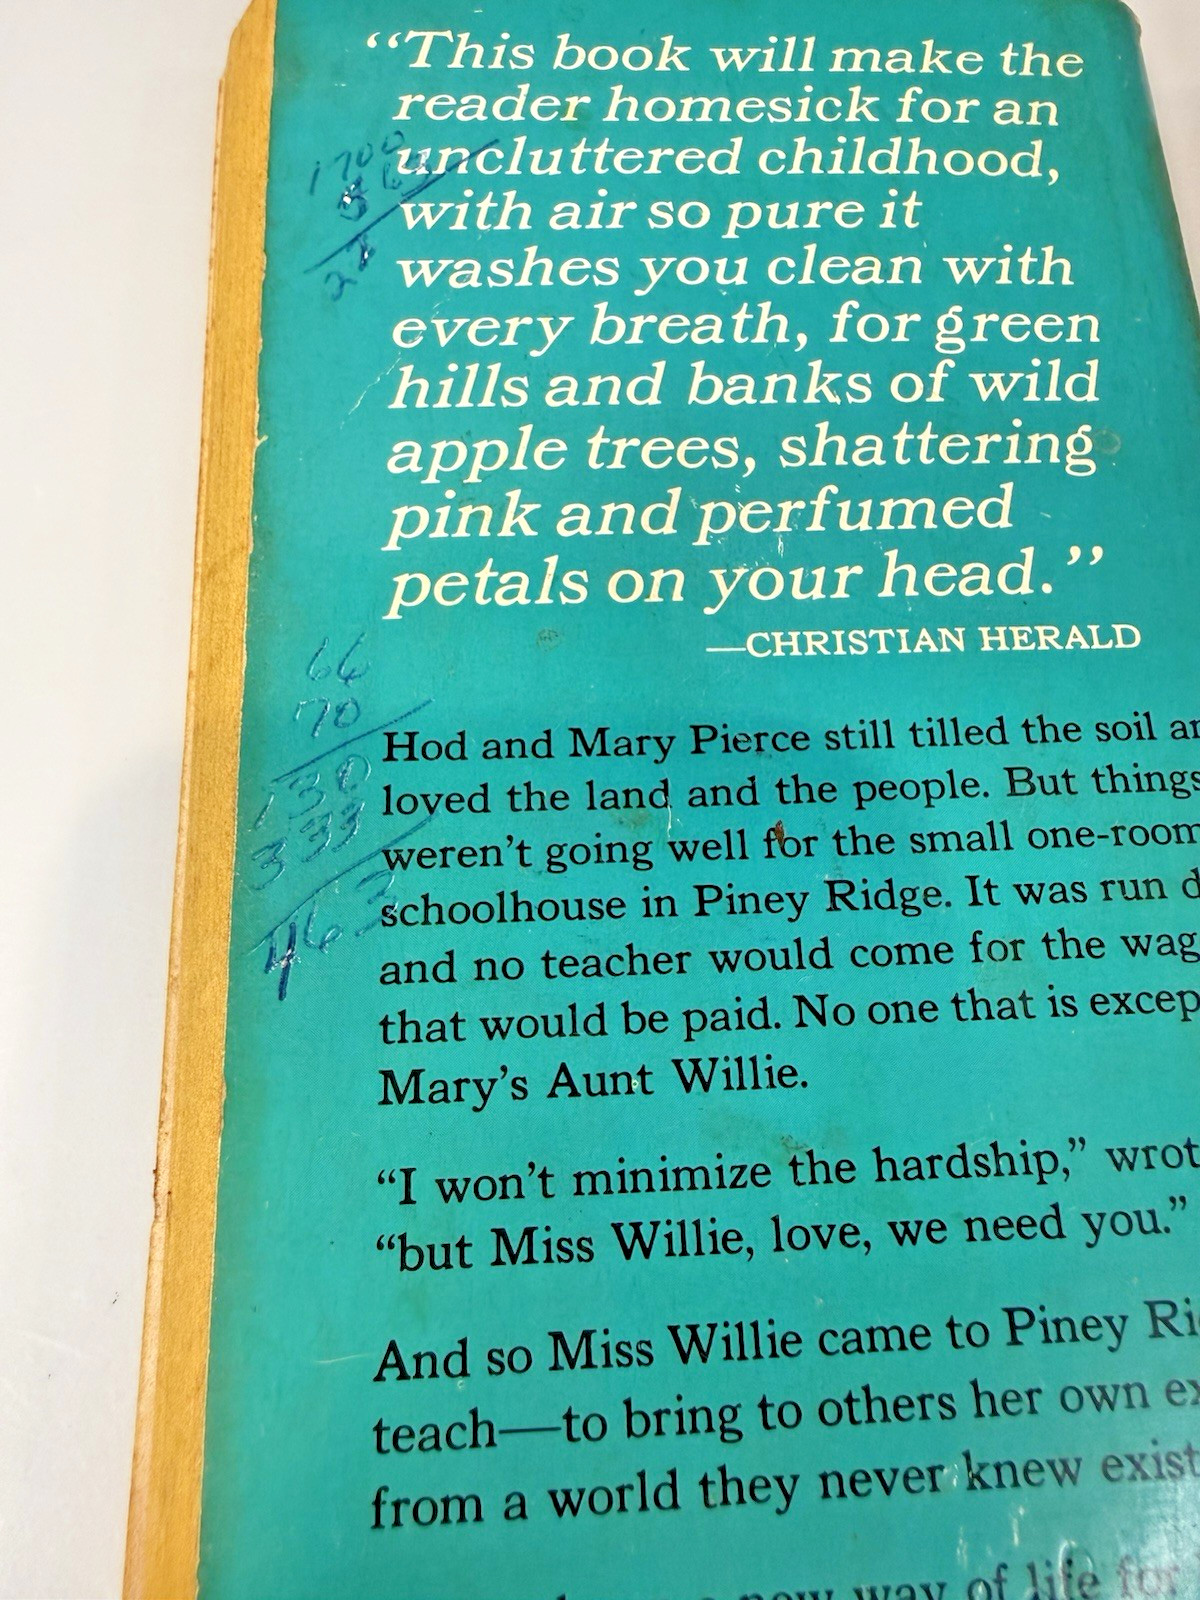 “This book will make the
reader homesick for an
uncluttered childhood,
with air so pure it
washes you clean with
every breath, for green
hills and banks of wild
apple trees, shattering
pink and perfumed
petals on your head.”
—CHRISTIAN HERALD
1700
66
70
130
333
463
Hod and Mary Pierce still tilled the soil
loved the land and the people. But things
weren’t going well for the small one-room
schoolhouse in Piney Ridge. It was run
and no teacher would come for the
that would be paid. No one that is
Mary’s Aunt Willie.
“I won’t minimize the hardship,”
“but Miss Willie, love, we need you.”
And so Miss Willie came to Piney
teach—to bring to others her own
from a world they never knew
new way of life for